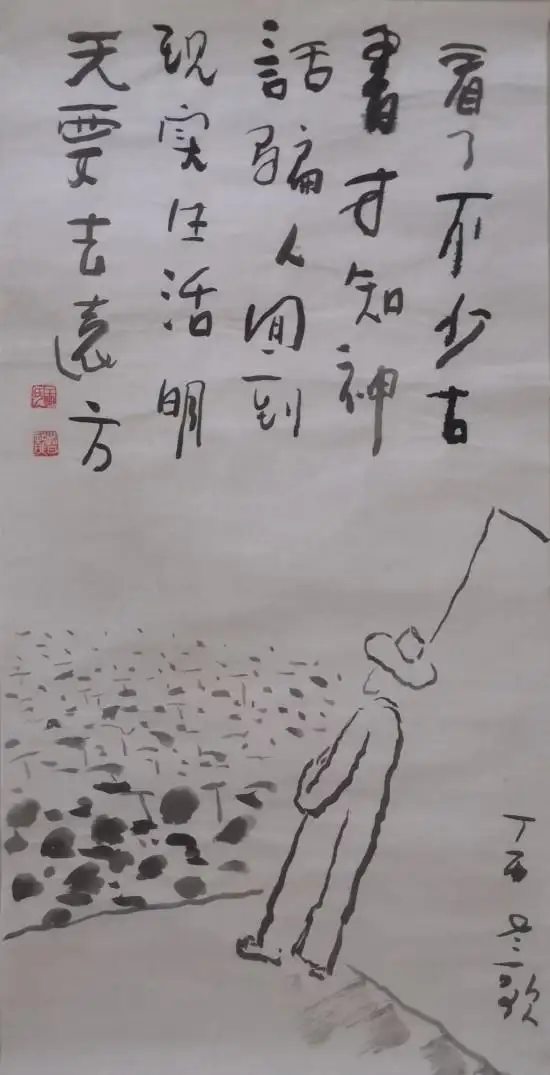 看了不少古
書才知神
話騙人回到
现实生活明
天要去遠方
丁酉